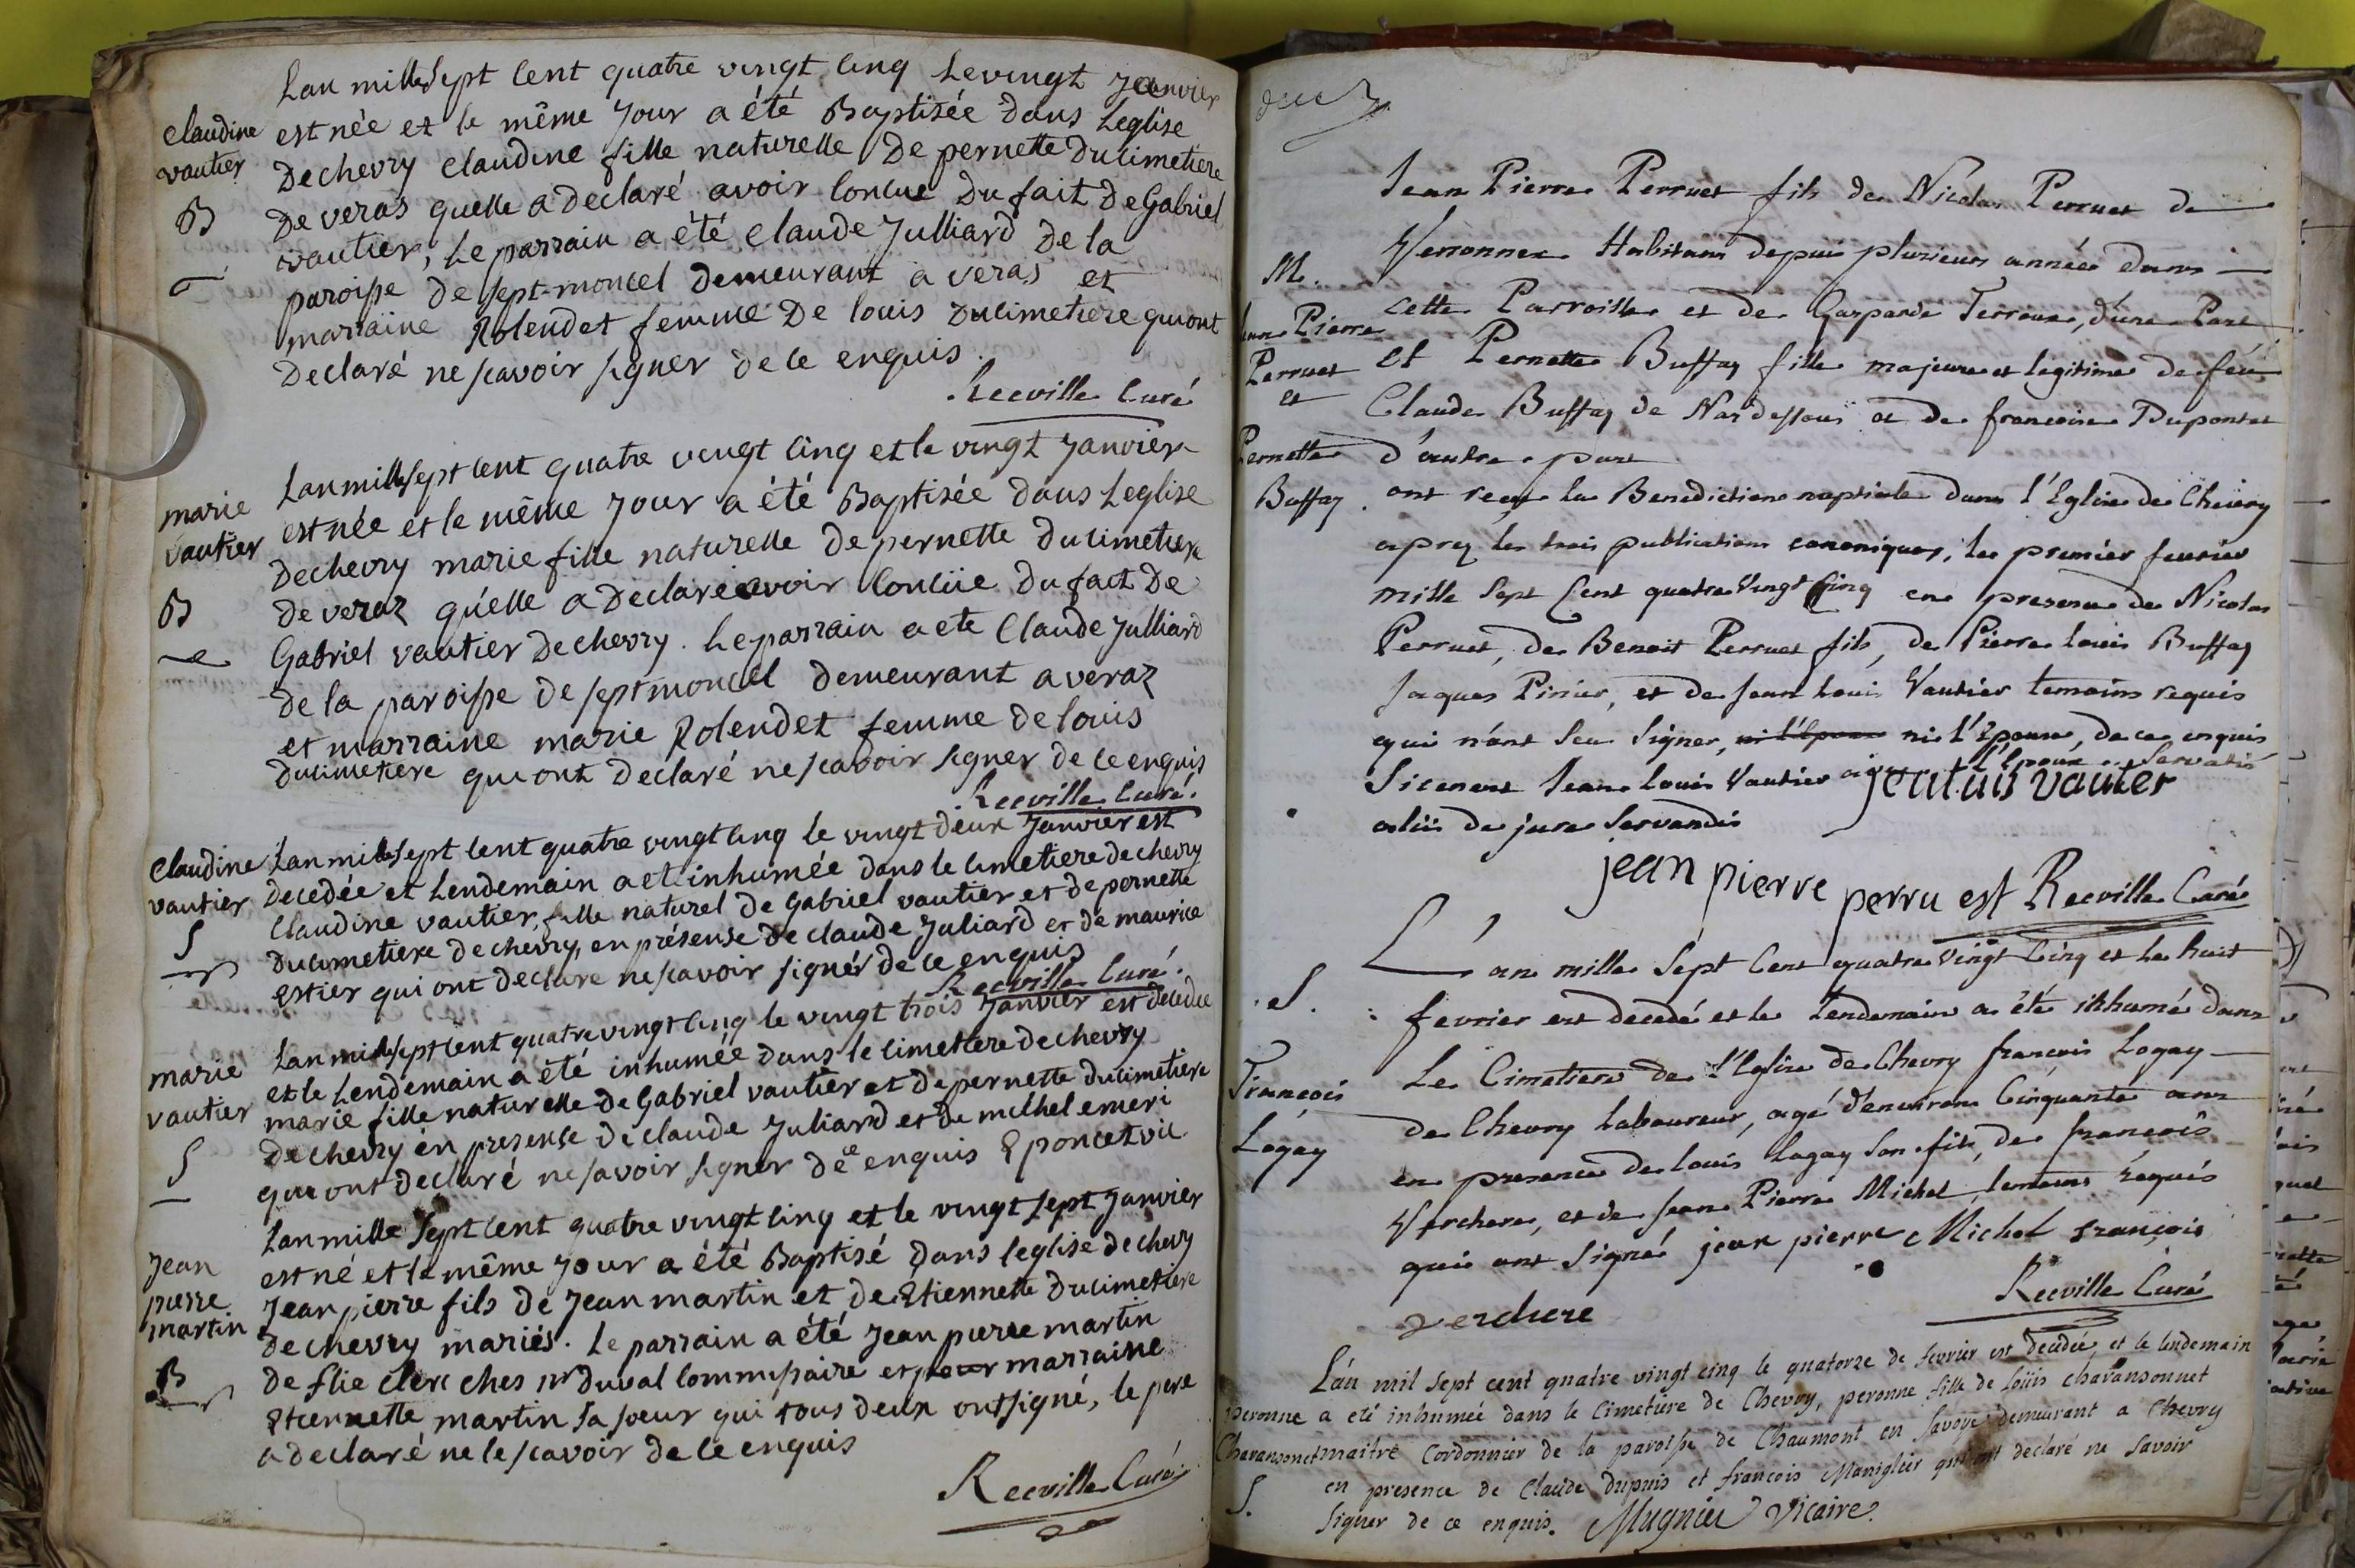 Lan mille Sept Cent quatre vingt cinq Le vingt Janvier
claudine
vautier
B
est née et le même Jour a été Baptisée dans Leglise
De chevry claudine fille naturelle De pernette Ducimetiere
De veras quelle a declaré avoir concue Du fait De Gabriel
vautier, Le parrain a été claude Julliard De la
paroisse De sept-moncel Demeurant a veras et
marraine Rolendet femme De louis Ducimetiere qui ont
Declaré ne scavoir signer de ce enquis.
Reeville Curé
marie
vautier
B
Lan mille sept cent quatre vingt cinq et le vingt Janvier
est née et le même Jour a été Baptisée dans Leglise
De chevry marie fille naturelle De pernette Ducimetiere
de veraz qu'elle a declaré avoir concüe Du fait De
Gabriel vautier De chevry. Le parrain a ete Claude Julliard
de la paroisse De sept moncel demeurant a veraz
et marraine marie Rolendet femme De louis
Ducimetiere qui ont Declaré ne scavoir signer de ce enquis
Reeville Curé.
claudine
vautier
S
Lan mille sept cent quatre vingt cinq le vingt deux Janvier est
Decedée et Lendemain a eté inhumée dans le cimetiere de chevry
Claudine vautier, fille naturel de Gabriel vautier et de pernette
Ducimetiere de chevry, en présense de claude Juliard et de maurice
estier qui ont declare ne scavoir signér de ce enquis
Reeville Curé.
marie
vautier
S
Lan mille sept cent quatre vingt cinq le vingt trois Janvier est decedée
et le Lendemain a été inhumée dans le cimetiere de chevry
marie fille naturelle de Gabriel vautier et de pernette ducimetiere
de chevry en presense de claude Juliard et de michel emeri
qui ont declaré ne savoir signer de ce enquis E poncet vic
Jean
pierre
martin
B
Lan mille Sept cent quatre vingt cinq et le vingt sept Janvier
est né et le même Jour a été Baptisé dans leglise de chevry
Jean pierre fils de Jean martin et de Etiennette Ducimetiere
de chevry mariés. Le parrain a été Jean pierre martin
de flie clerc ches mr duval commissaire et pour marraine
Etiennette martin sa soeur qui tous deux ont signé, le pere
a declaré ne le scavoir de ce enquis
Reeville Curé
deux
M.
Jean Pierre
Perruet
et
Pernette
Buffay
Jean Pierre Perruet fils de Nicolas Perruet de
Versonnex Habitant depuis plusieurs années dans
cette Parroisse et de Gasparde Terroux, d'une Part
Et Pernette Buffay fille majeure et legitime de feü
Claude Buffay de Naz dessous et de francoise Dupontet
d'autre part
ont reçu la Benediction nuptiale dans l'Eglise de Chevry
aprez les trois publications canoniques, le premier fevrier
mille sept Cent quatre Vingt Cinq en presence de Nicolas
Perruet, de Benoit Perruet fils, de Pierre Louis Buffay
Jaques Pirier, et de Jean Louis Vautier temoins requis
qui n'ont seu signer, ni l'Epouse ni l'Epouse, de ce enquis
Sicenont Jean Louis Vautier l'Epoux Servatis
aliis de jure servandis
jean luis vautier
jean pierre perru est Reeville Curé
S.
François
Logay
L'an mille sept Cent quatre Vingt Cinq et Le huit
fevrier est decedé et le Lendemain a été inhumé dans
Le Cimetiere de l'Eglise de Chevry francois Logay
de Chevry laboureur, agé d'environ Cinquante ans
en presence de louis Logay son fils, de francois
Verchere, et de Jean Pierre Michel temoins requis
qui ont signé jean pierre Michel françois
verchere
Reeville Curé
peronne
Charansonnet
S.
L'an mil sept cent quatre vingt cinq le quatorze de fevrier est decedée, et le lendemain
a eté inhumée dans le Cimetiere de Chevry, peronne fille de Loüis charansonnet
maitre Cordonnier de la paroisse de Chaumont en Savoye demeurant a Chevry
en presence de Claude Dupuis et francois Maniglier qui ont declaré ne savoir
signer de ce enquis. Mugnier Vicaire.